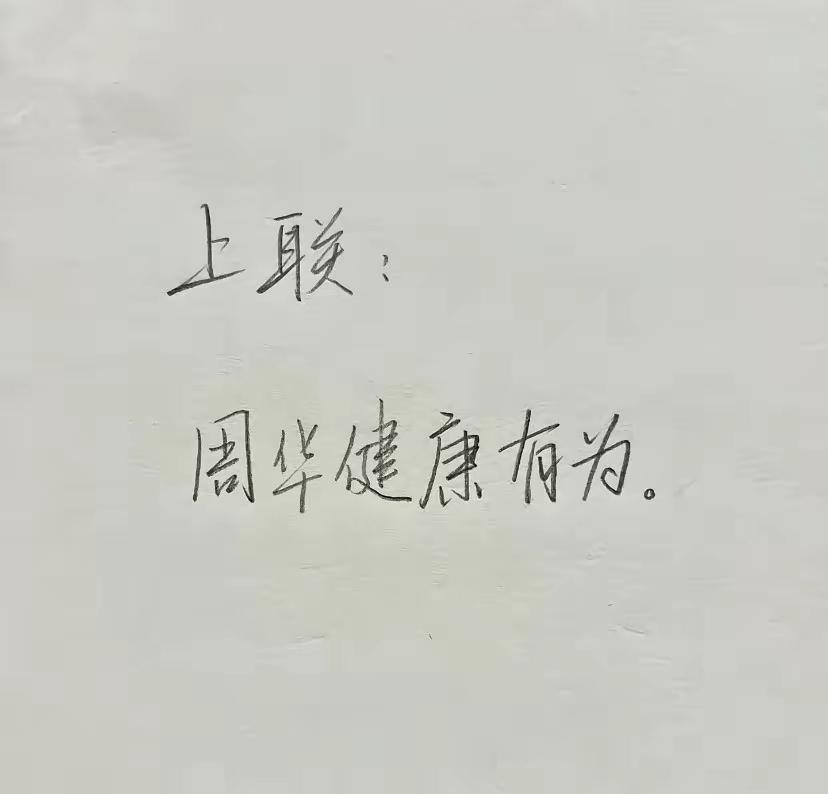 上联：
周华健康有为。